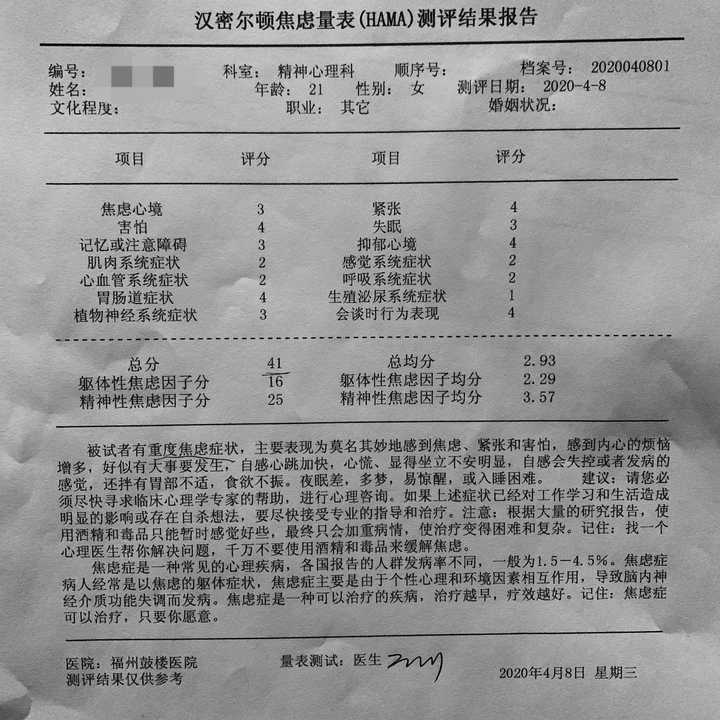 汉密尔顿焦虑量表(HAMA)测评结果报告
编号： 科室： 精神心理科 顺序号： 档案号： 2020040801
姓名： 年龄： 21 性别： 女 测评日期： 2020-4-8
文化程度： 职业： 其它 婚姻状况：
项目 评分 项目 评分
焦虑心境 3 紧张 4
害怕 4 失眠 3
记忆或注意障碍 3 抑郁心境 4
肌肉系统症状 2 感觉系统症状 2
心血管系统症状 2 呼吸系统症状 2
胃肠道症状 4 生殖泌尿系统症状 1
植物神经系统症状 3 会谈时行为表现 4
总分 41 总均分 2.93
躯体性焦虑因子分 16 躯体性焦虑因子均分 2.29
精神性焦虑因子分 25 精神性焦虑因子均分 3.57
被试者有重度焦虑症状，主要表现为莫名其妙地感到焦虑、紧张和害怕，感到内心的烦恼
增多，好似有大事要发生，自感心跳加快，心慌、显得坐立不安明显，自感会失控或者发病的
感觉，还拌有胃部不适，食欲不振。夜眠差，多梦，易惊醒，或入睡困难。 建议：请您必
须尽快寻求临床心理学专家的帮助，进行心理咨询。如果上述症状已经对工作学习和生活造成
明显的影响或存在自杀想法，要尽快接受专业的指导和治疗。注意：根据大量的研究报告，使
用酒精和毒品只能暂时感觉好些，最终只会加重病情，使治疗变得困难和复杂。记住：找一个
心理医生帮你解决问题，千万不要使用酒精和毒品来缓解焦虑。
焦虑症是一种常见的心理疾病，各国报告的人群发病率不同，一般为1.5－4.5%。焦虑症
病人经常是以焦虑的躯体症状，焦虑症主要是由于个性心理和环境因素相互作用，导致脑内神
经介质功能失调而发病。焦虑症是一种可以治疗的疾病，治疗越早，疗效越好。记住：焦虑症
可以治疗，只要你愿意。
医院：福州鼓楼医院 量表测试：医生
测评结果仅供参考 2020年4月8日 星期三